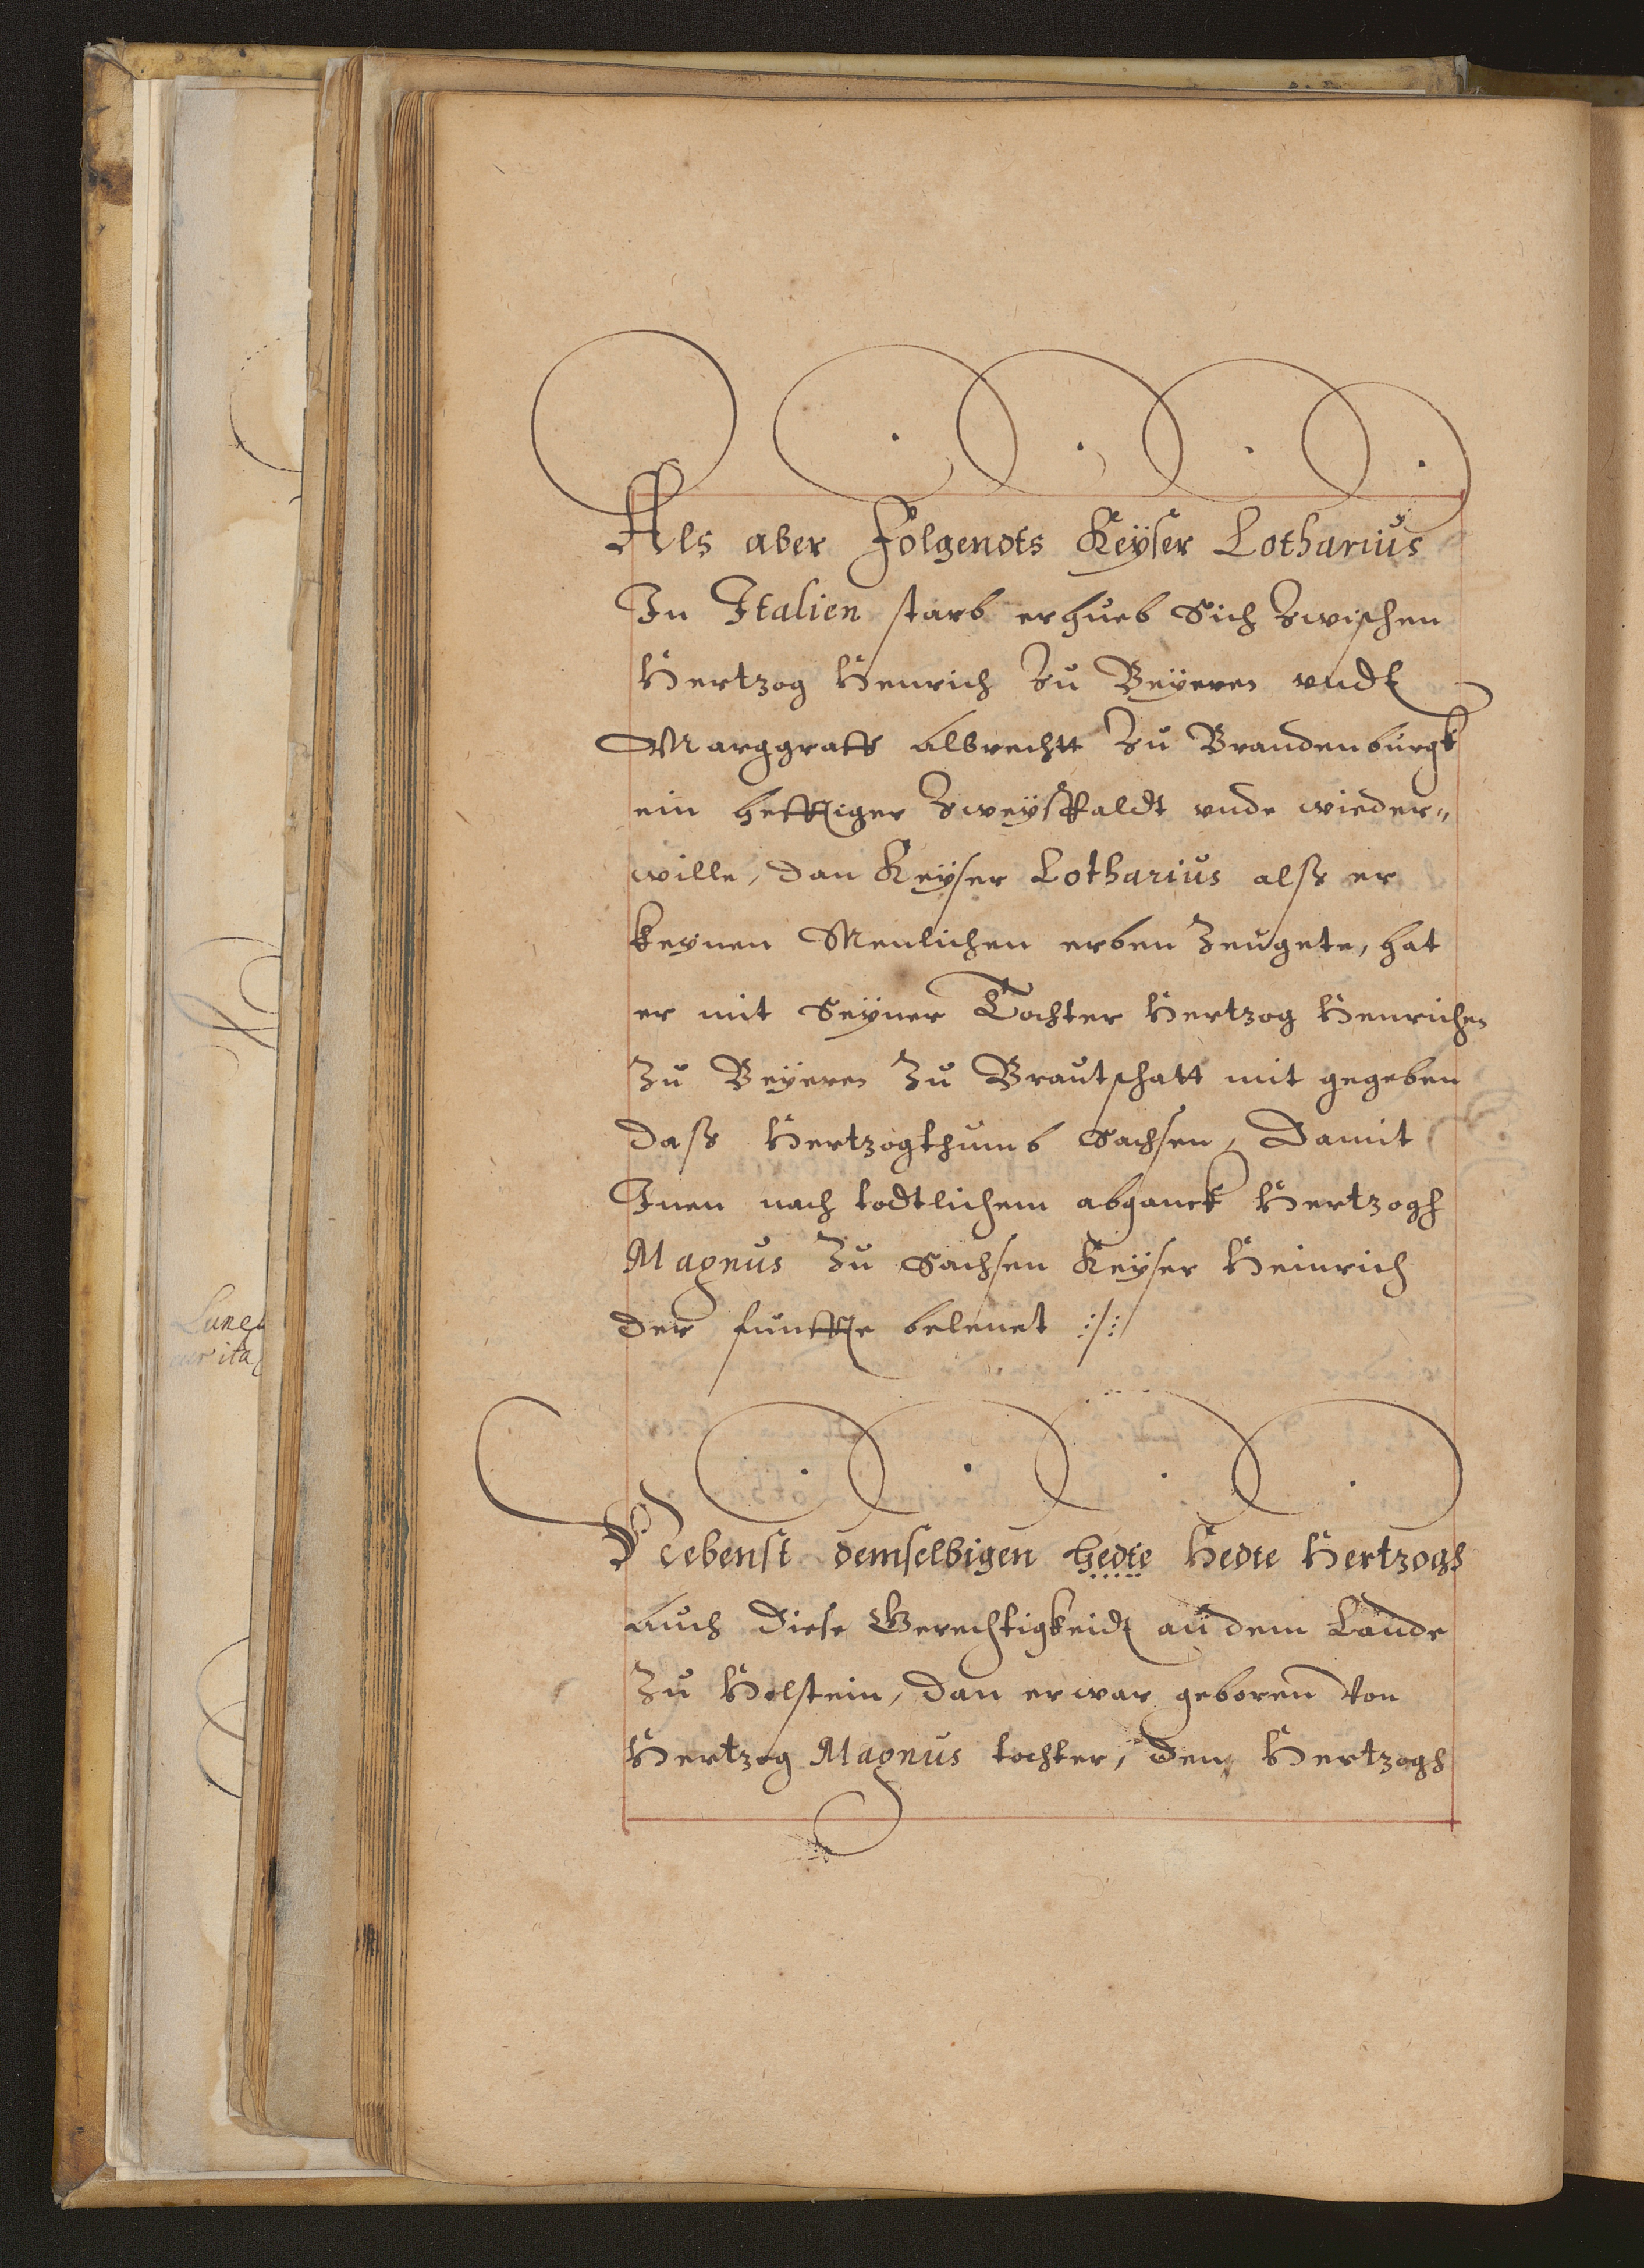 Als aber Folgendts Keÿser Lotharius
In Italien starb erhueb Sich Zwischen
Hertzog Henrich Zu Beÿeren undt
Marggraff Albrechtt Zu Brandenburgk
ein hefftiger Zweÿspaldt unde wieder„
wille, dan Keÿser Lotharius alß er
keynen Menlichen erben Zeugete, hat
er mit Seyner Tochter Hertzog Henrichen
Zu Beÿeren Zu Brautschatt mit gegeben
daß Hertzogthumb Sachsen, Damit
Inen nach todtlichem abganck Hertzogh
Magnus Zu Sachsen Keÿser Heinrich
der funffte belenet :/:
Nebenst demselbigen hedte Hedte Hertzogh
auch Diese Gerechtigkeidt an dem Lande
Zu Holstein, dan er war geboren von
Hertzog Magnus tochter, Den Hertzogh
Lune
ita